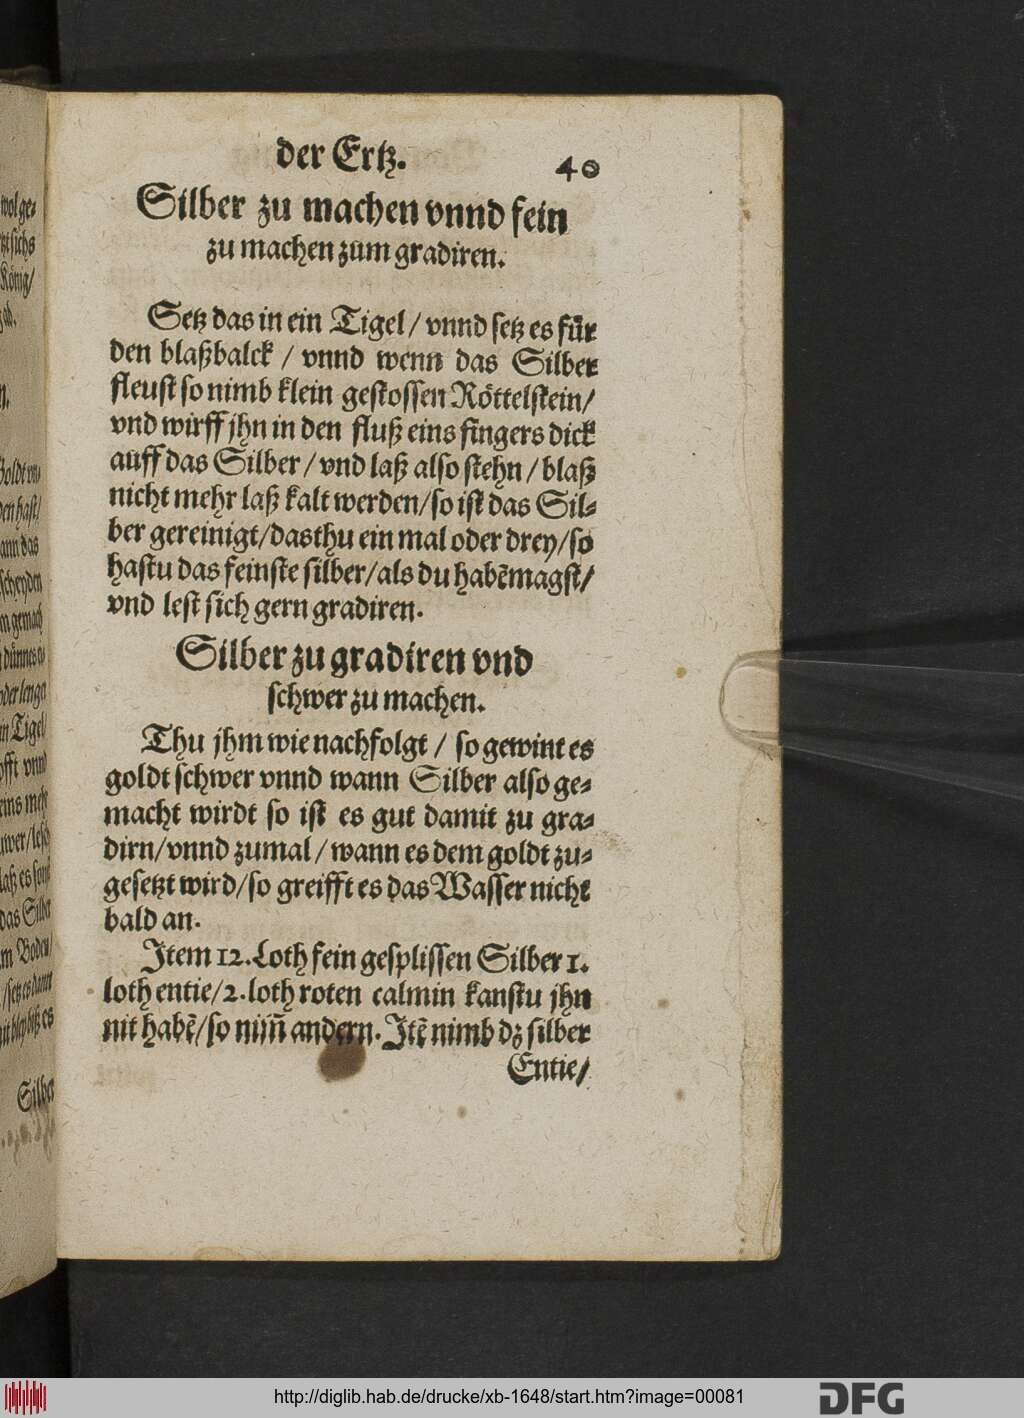 der Ertz.
40
Silber zu machen vnnd fein
zu machen zum gradiren.
Setz das in ein Tigel / vnnd setz es für
den blaßbalck / vnnd wenn das Silber
fleust so nimb klein gestossen Röttelstein /
vnd wirff jhn in den fluß eins fingers dick
auff das Silber / vnd laß also stehn / blaß
nicht mehr laß kalt werden / so ist das Sil=
ber gereinigt / das thu ein mal oder drey / so
hastu das feinste silber / als du habẽ magst /
vnd lest sich gern gradiren.
Silber zu gradiren vnd
schwer zu machen.
Thu jhm wie nachfolgt / so gewint es
goldt schwer vnnd wann Silber also ge=
macht wirdt so ist es gut damit zu gra=
dirn / vnnd zumal / wann es dem goldt zu=
gesetzt wird / so greifft es das Wasser nicht
bald an.
Item 12. Loth fein gesplissen Silber 1.
loth entie / 2. loth roten calmin kanstu jhn
nit habẽ / so nim̃ andern. Itẽ nimb dz silber
Entie /
wol ge=
König /
Goldt
den hast /
ann das
scheyden
gemach
dünne
in Tigel
vnnd
laß es
das Silber
m Boden /
Silber
http://diglib.hab.de/drucke/xb-1648/start.htm?image=00081
DFG